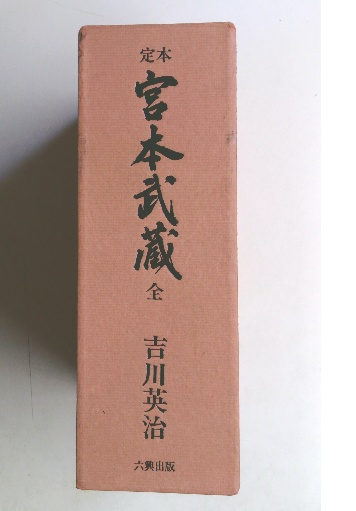 定本
宮本武蔵
全
吉川英治
六興出版